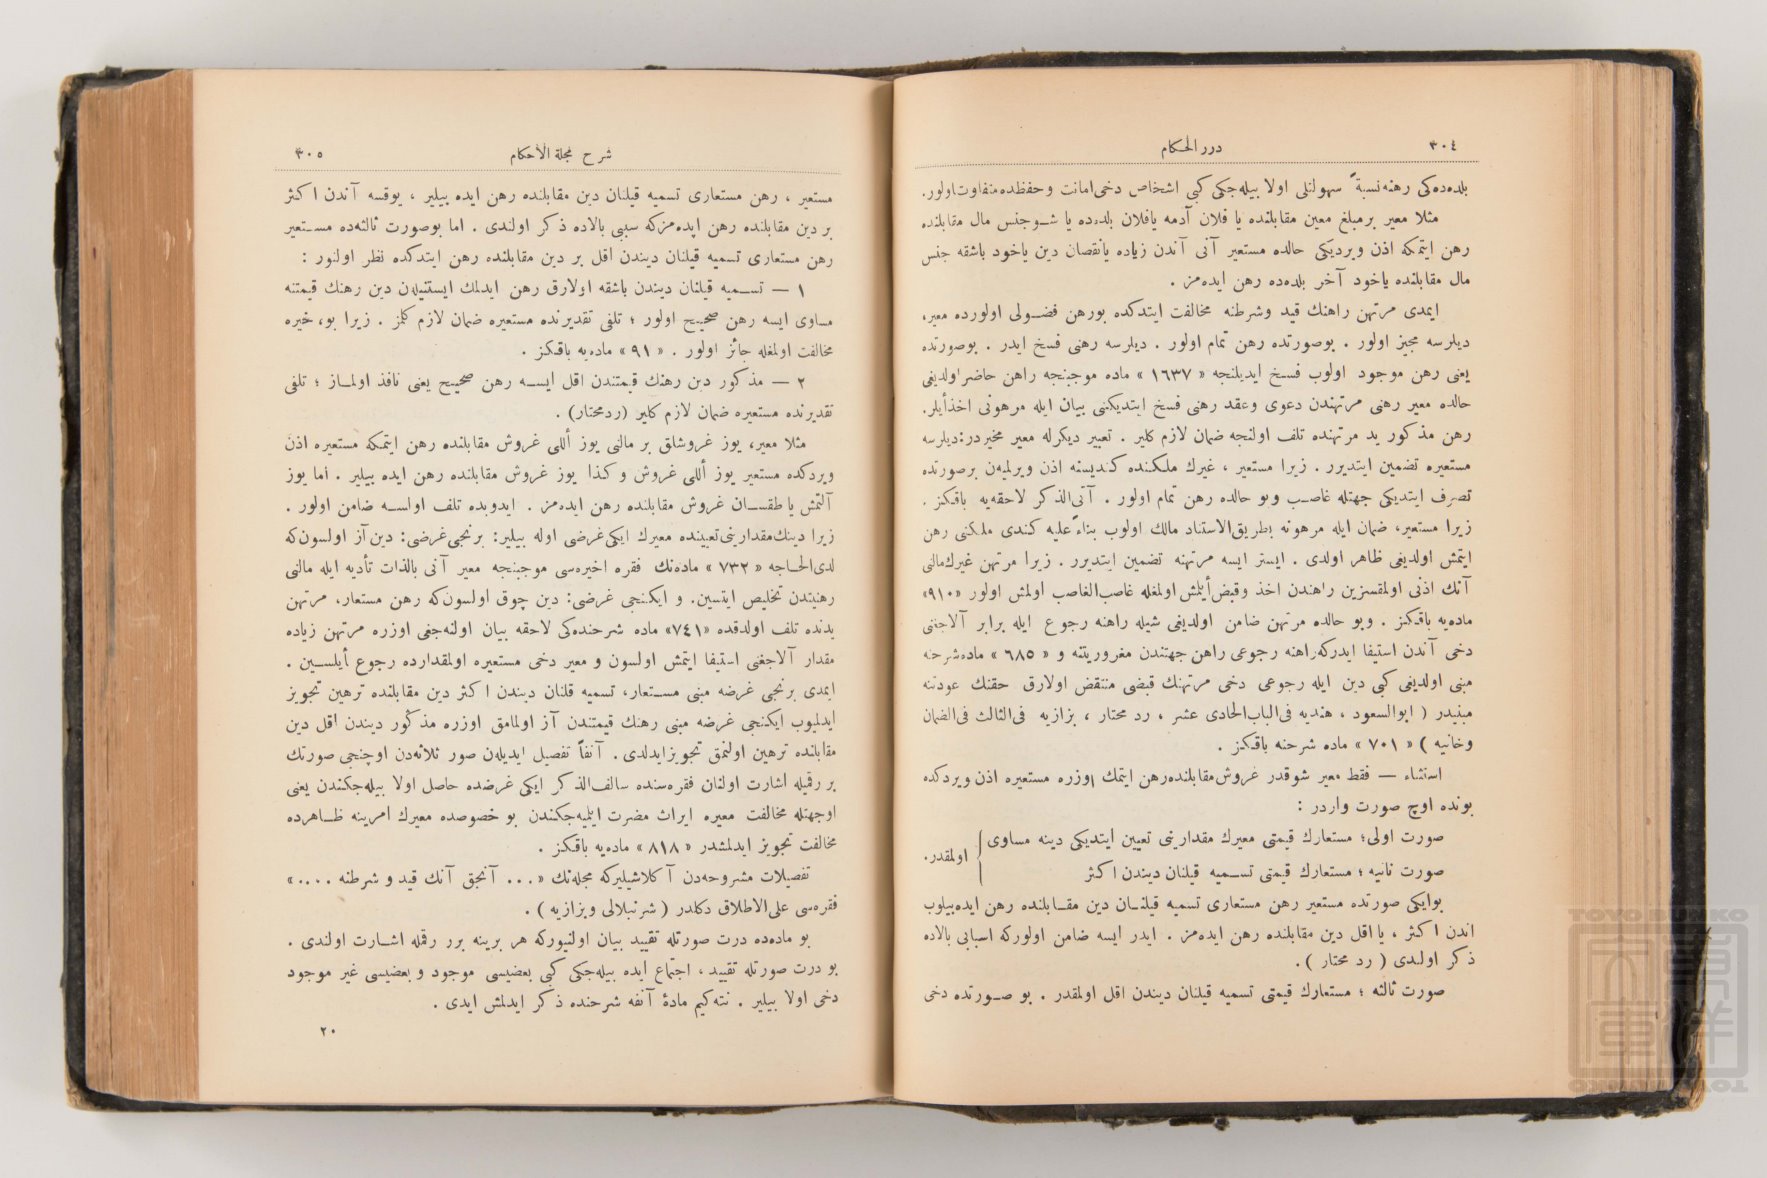 ٣٠٤
درر الحكام
بلده‌ده‌كی رهنه نسبةً سهولتلی اولا بيله‌جكی كبی اشخاص دخی امانت و حفظده متفاوت اولور.
مثلا معير بر مبلغ معين مقابلنده يا فلان آدمه يا فلان بلده‌ده يا شو جنس مال مقابلنده
رهن ايتمكه اذن ويرديكی حالده مستعير آنی آندن زياده يا نقصان دين ياخود باشقه جنس
مال مقابلنده ياخود آخر بلده‌ده رهن ايده‌مز .
ايمدی مرتهن راهنك قيد وشرطنه مخالفت ايتدكده بورهن فضولی اولورده معير،
ديلرسه مجيز اولور . بوصورتده رهن تمام اولور . ديلرسه رهنی فسخ ايدر . بوصورتده
يعنی رهن موجود اولوب فسخ ايديلنجه « ١٦٣٧ » ماده موجبنجه راهن حاضر اولديغی
حالده معير رهنی مرتهندن دعوی وعقد رهنی فسخ ايتديكنی بيان ايله مرهونی اخذ أيلر.
رهن مذكور يد مرتهنده تلف اولنجه ضمان لازم كلير . تعبير ديكرله معير مخيردر: ديلرسه
مستعيره تضمين ايتديرر . زيرا مستعير ، غيرك ملكنده كنديسنه اذن ويرلمين برصورتده
تصرف ايتديكی جهتله غاصب وبو حالده رهن تمام اولور . آتی‌الذكر لاحقه‌يه باقكز .
زيرا مستعير، ضمان ايله مرهونه بطريق‌الاستناد مالك اولوب بناءً عليه كندی ملكنی رهن
ايتمش اولديغی ظاهر اولدی . ايستر ايسه مرتهنه تضمين ايتديرر . زيرا مرتهن غيرك مالنی
آنك اذنی اولمقسزين راهندن اخذ وقبض أيلمش اولمغله غاصب‌الغاصب اولمش اولور «٩١٠»
ماده‌يه باقكز . وبو حالده مرتهن ضامن اولديغی شيله راهنه رجوع ايله برابر آلاجغنی
دخی آندن استيفا ايدركه راهنه رجوعی راهن جهتندن مغروريتنه و « ٦٨٥ » ماده شرحنه
مبنی اولديغی كبی دين ايله رجوعی دخی مرتهنك قبضی منتقض اولارق حقنك عودتنه
مبنيدر ( ابوالسعود ، هنديه فی‌الباب‌الحادی عشر ، رد محتار ، بزازيه فی‌الثالث فی‌الضمان
وخانيه ) « ٧٠١ » ماده شرحنه باقكز .
استثناء — فقط معير شوقدر غروش مقابلنده رهن ايتمك اوزره مستعيره اذن ويردكده
بونده اوچ صورت واردر :
صورت اولی؛ مستعارك قيمتی معيرك مقدارينی تعيين ايتديكی دينه مساوی
صورت ثانيه ؛ مستعارك قيمتی تسميه قيلنان ديندن اكثر
اولمقدر.
بوايكی صورتده مستعير رهن مستعاری تسميه قيلنان دين مقابلنده رهن ايده‌بيلوب
اندن اكثر ، يا اقل دين مقابلنده رهن ايده‌مز . ايدر ايسه ضامن اولوركه اسبابی بالاده
ذكر اولدی ( رد محتار ).
صورت ثالثه ؛ مستعارك قيمتی تسميه قيلنان ديندن اقل اولمقدر . بو صورتده دخی
شرح مجلة الاحكام
٣٠٥
مستعير ، رهن مستعاری تسميه قيلنان دين مقابلنده رهن ايده بيلير ، يوقسه آندن اكثر
بر دين مقابلنده رهن ايده‌مزكه سببی بالاده ذكر اولندی . اما بوصورت ثالثه‌ده مستعير
رهن مستعاری تسميه قيلنان ديندن اقل بر دين مقابلنده رهن ايتدكده نظر اولنور :
١ — تسميه قيلنان ديندن باشقه اولارق رهن ايدلمك ايستنيلن دين رهنك قيمتنه
مساوی ايسه رهن صحيح اولور ؛ تلفی تقديرنده مستعيره ضمان لازم كلمز . زيرا بو، خيره
مخالفت اولمغله جائز اولور . « ٩١ » ماده‌يه باقكز .
٢ — مذكور دين رهنك قيمتندن اقل ايسه رهن صحيح يعنی نافذ اولماز ؛ تلفی
تقديرنده مستعيره ضمان لازم كلير (ردمحتار).
مثلا معير، يوز غروشلق بر مالنی يوز أللی غروش مقابلنده رهن ايتمكه مستعيره اذن
ويردكده مستعير يوز أللی غروش و كذا يوز غروش مقابلنده رهن ايده بيلير . اما يوز
آلتمش يا طقسان غروش مقابلنده رهن ايده‌مز . ايدوبده تلف اولسه ضامن اولور .
زيرا دينك مقدارينی تعيينده معيرك ايكی غرضی اوله بيلير: برنجی غرضی: دين آز اولسون‌كه
لدی‌الحاجه « ٧٣٢ » ماده‌نك فقره اخيره‌سی موجبنجه معير آنی بالذات تأديه ايله مالنی
رهنيتدن تخليص ايتسين. و ايكنجی غرضی: دين چوق اولسون‌كه رهن مستعار، مرتهن
يدنده تلف اولدقده «٧٤١» ماده شرحنده‌كی لاحقه بيان اولنه‌جغی اوزره مرتهن زياده
مقدار آلاجغنی استيفا ايتمش اولسون و معير دخی مستعيره اولمقدارده رجوع أيلسين .
ايمدی برنجی غرضه مبنی مستعار، تسميه قلنان ديندن اكثر دين مقابلنده ترهين تجويز
ايدلميوب ايكنجی غرضه مبنی رهنك قيمتندن آز اولمامق اوزره مذكور ديندن اقل دين
مقابلنده ترهين اولنمق تجويز ايدلدی . آنفاً تفصيل ايديلن صور ثلاثه‌دن اوچنجی صورتك
بر رقميله اشارت اولنان فقره‌سنده سالف‌الذكر ايكی غرضده حاصل اولا بيله‌جكندن يعنی
اوجهتله مخالفت معيره ايراث مضرت ايلميه‌جكندن بو خصوصده معيرك امرينه ظاهرده
مخالفت تجويز ايدلمشدر « ٨١٨ » ماده‌يه باقكز .
تفصيلات مشروحه‌دن آكلاشيليركه مجله‌نك «... آنجق آنك قيد و شرطنه ....»
فقره‌سی علی‌الاطلاق دكلدر ( شرنبلالی وبزازيه ) .
بو ماده‌ده درت صورتله تقييد بيان اولنيوركه هر برينه برر رقمله اشارت اولندی .
بو درت صورتله تقييد ، اجتماع ايده بيله‌جكی كبی بعضيسی موجود و بعضيسی غير موجود
دخی اولا بيلير . نته‌كيم مادهٔ آنفه شرحنده ذكر ايدلمش ايدی .
٢٠
TOYO BUNKO